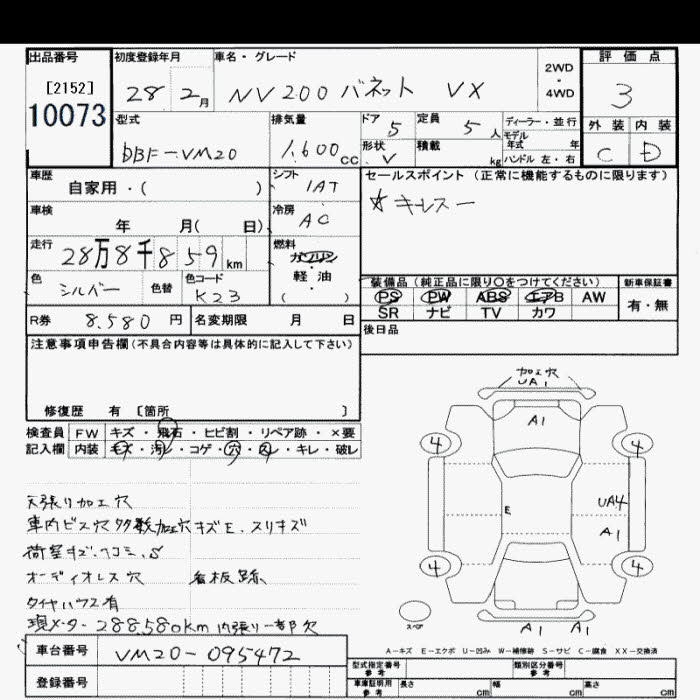 出品番号 初度登録年月 車名・グレード 評価点
[2152] 28 2月 NV200 バネット VX 2WD・4WD 3
10073
型式 排気量 ドア 5 定員 5人 ディーラー・並行 外装 内装
DBF-VM20 1,600cc 形状 V 積載 kg モデル年式 年 C D
ハンドル 左・右
車歴 シフト セールスポイント (正常に機能するものに限ります)
自家用・( ) IAT ☆キーレス一
車検 冷房
年 月( 日) AC
走行 燃料
28万8千859km ガソリン・軽油
( )
色 シルバー 色替 色コード K23
装備品 (純正品に限り○をつけてください) 新車保証書
PS PW ABS エアB AW 有・無
SR ナビ TV カワ
R券 8,580円 名変期限 月 日
後日品
注意事項申告欄(不具合内容等は具体的に記入して下さい)
修復歴 有 〔箇所 〕
検査員 FW キズ・飛石・ヒビ割・リペア跡・×要
記入欄 内装 キズ・汚レ・コゲ・穴・スレ・キレ・破レ
加工穴
UA1
A1
4 4
E UA4
A1
4 4
スペア A1 A1
天張り加工穴
車内ビス穴多数加工穴キズE、スリキズ
荷室キズ、ヘコミ、S
オーディオレス穴 看板跡
タイヤハウス有
現メーター288,580km 内張り一部欠
A-キズ E-エクボ U-凹み W-補修跡 S-サビ C-腐食 XX-交換済
車台番号 VM20-095472
登録番号
型式指定番号 参考 類別区分番号 参考
車庫証明用 参考 長さ cm 幅 cm 高さ cm